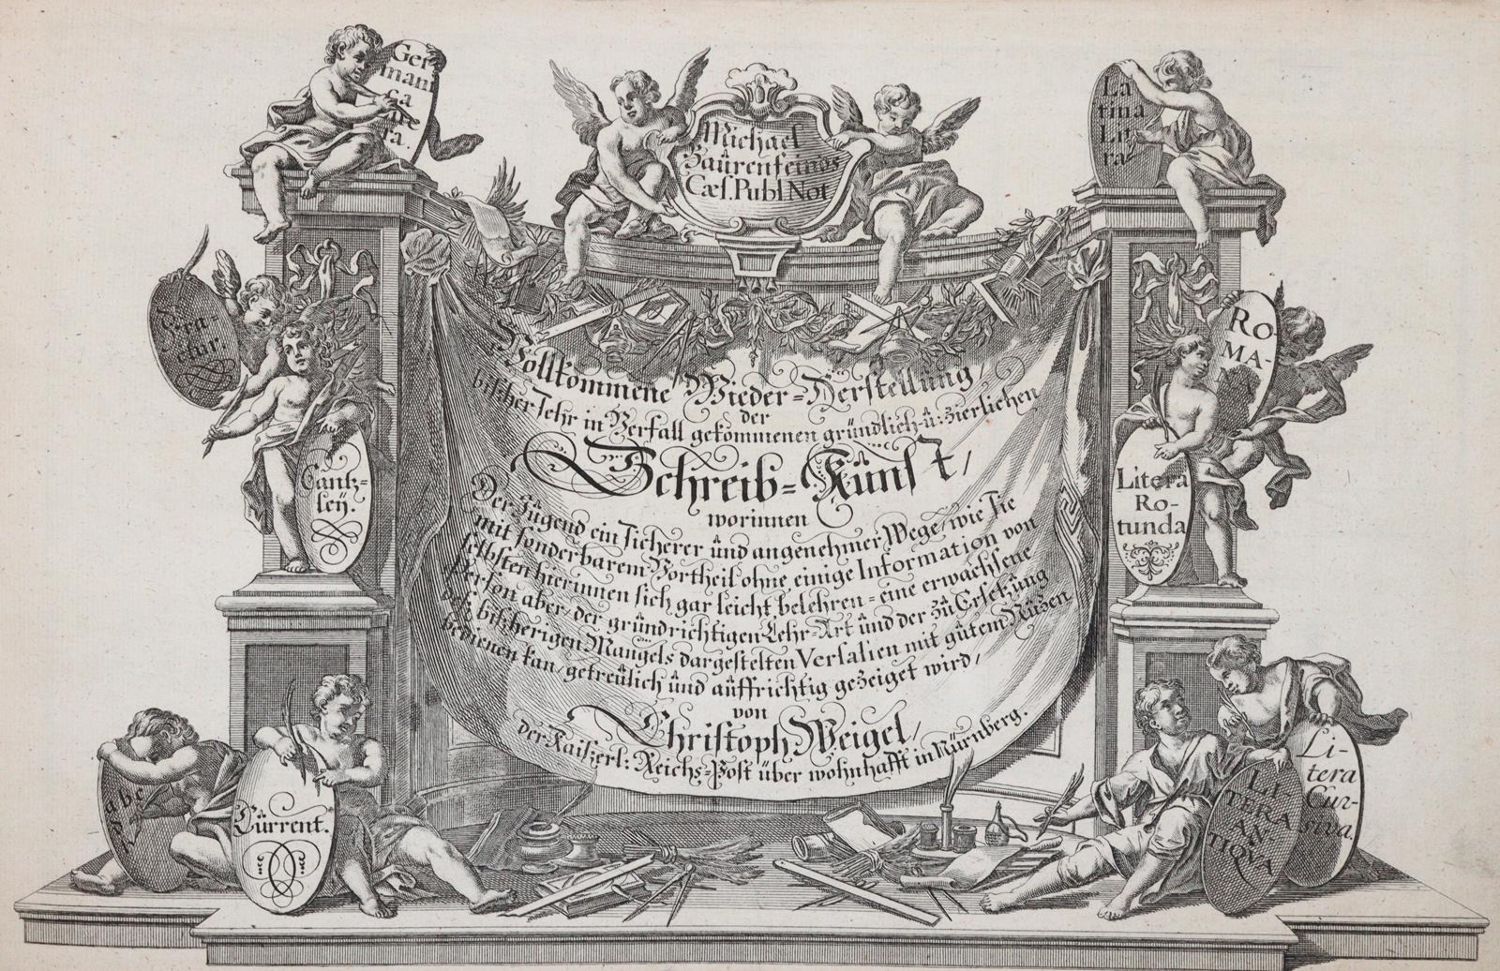 Ger
mani
ca
Lite
ra.
Michael
Baŭrenfeinds
Cæs. Publ Not
La
tina
Lit
ra
Fra-
ctur.
Ro-
MA-
Cantz-
leÿ.
Litera
Ro-
tunda
Vollkommene Wieder=Herstellŭng
der
bißher sehr in Verfall gekommenen gründlich=ŭ: zierlichen
Schreib=Kŭnst/
worinnen
Der Jŭgend ein sicherer ŭnd angenehmer Wege/ wie sie
mit sonderbarem Vortheil ohne einige Information von
selbsten hierinnen sich gar leicht belehren=eine erwachsene
Person aber/ der gründrichtigen Lehr=Art ŭnd der zŭ Ersetzŭng
deß bißherigen Mangels dargestelten Versalien mit gŭtem Nŭtzen
bedienen kan/ getreŭlich ŭnd aŭffrichtig gezeiget wird/
von
Christoph Weigel/
der Kaißerl: Reichs=Post über wohnhafft in Nürnberg.
Cŭrrent.
LI
TERA
AN
TIQVA
Li-
tera
Cur-
siva.